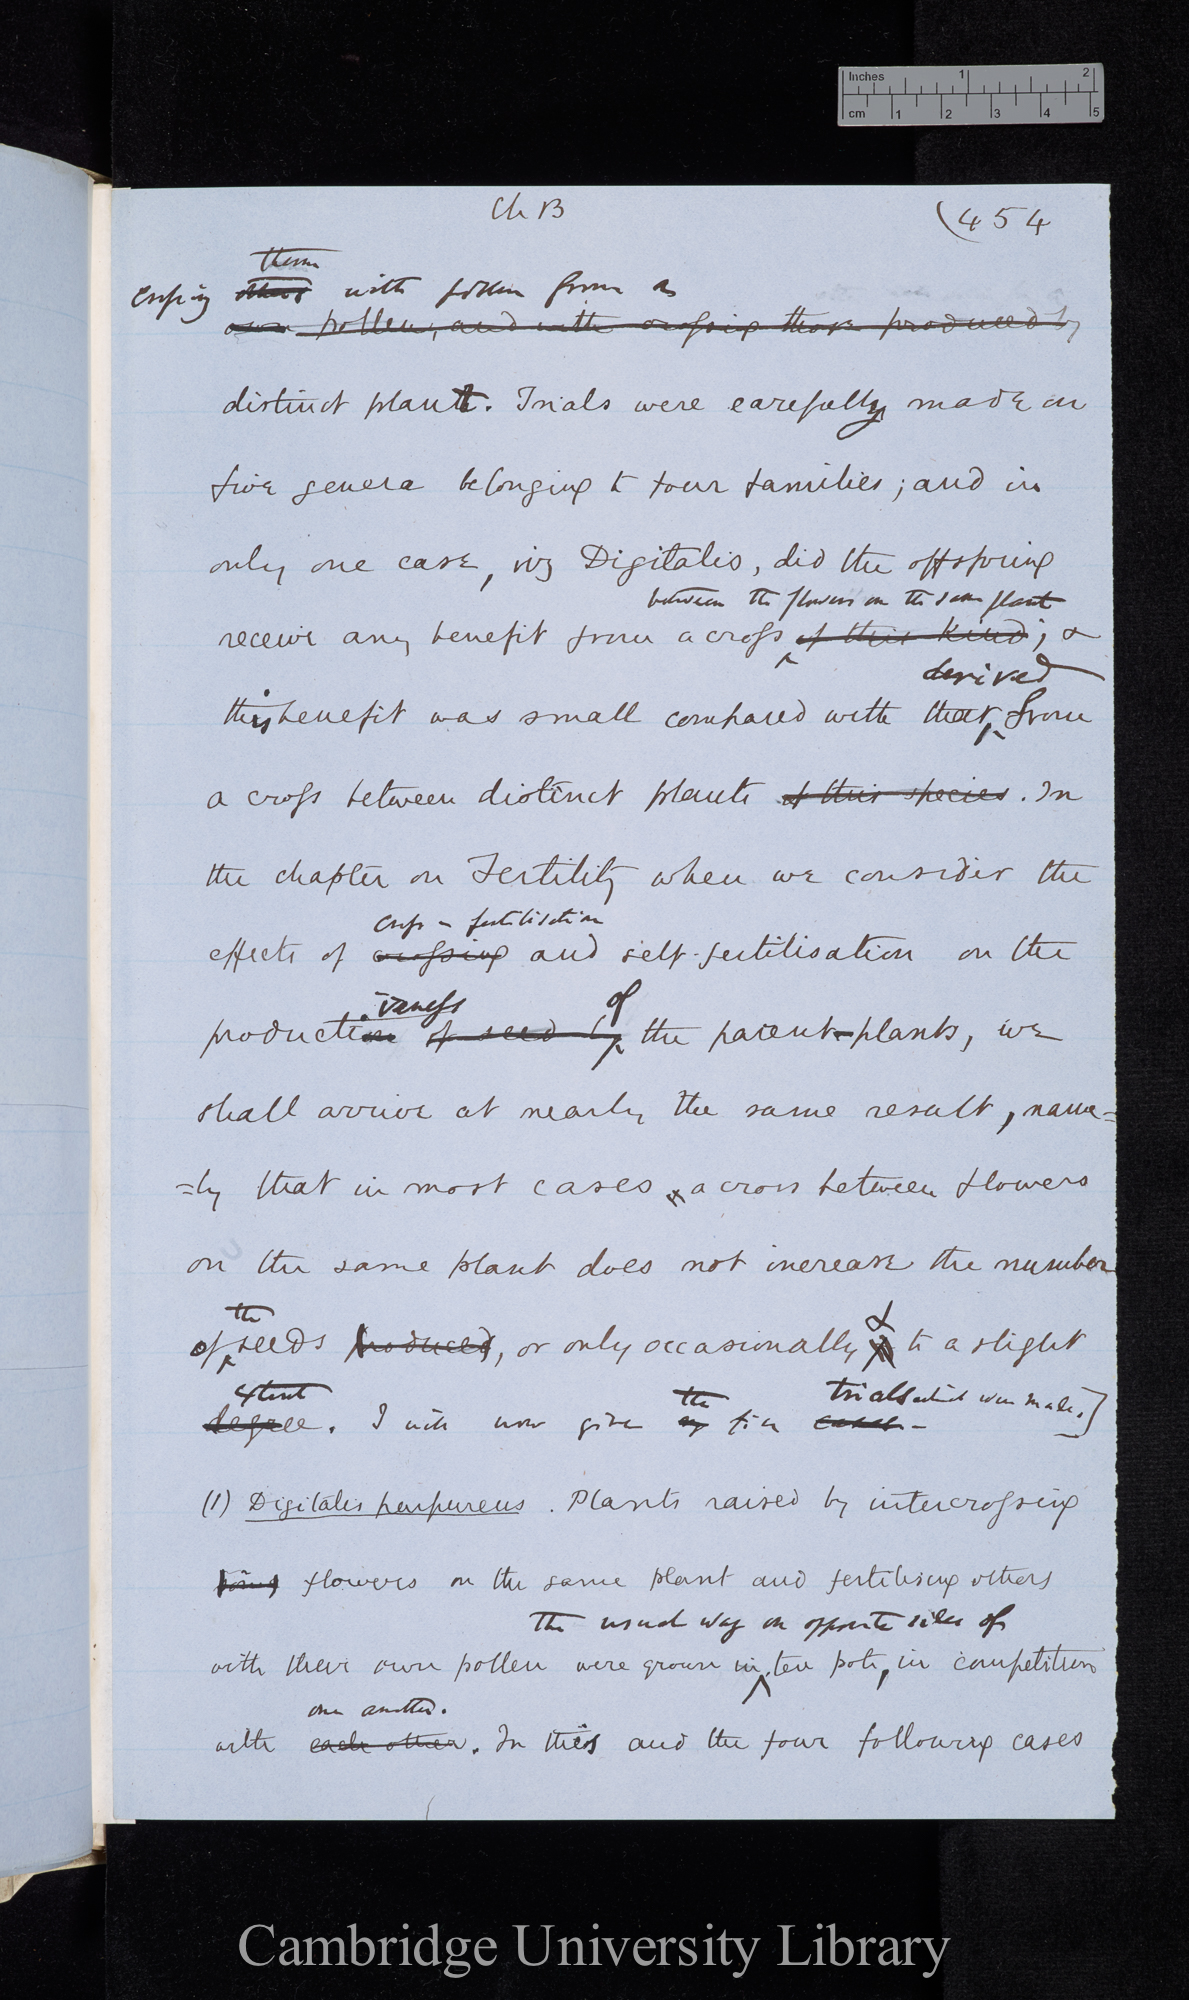 Inches 1 2
cm 1 2 3 4 5
Ch B
(454
them
crossing others with pollen from a
own pollen, and with crossing those produced by
distinct plant. Trials were carefully made on
five genera belonging to four families; and in
only one case, viz Digitalis, did the offspring
between the flowers on the same plant
receive any benefit from a cross of this kind; &
derived
this benefit was small compared with that from
a cross between distinct plants of this species. In
the chapter on Fertility when we consider the
cross-fertilisation
effects of crossing and self-fertilisation on the
iveness of
production of seed by the parent-plants, we
shall arrive at nearly the same result, name=
=ly that in most cases a cross between flowers
on the same plant does not increase the number
the &
of seeds produced, or only occasionally to a slight
extent the trials which were made.]
degree. I will now give my five cases.
(1) Digitalis purpureus. Plants raised by intercrossing
flowers on the same plant and fertilising others
the usual way on opposite sides of
with their own pollen were grown in ten pots, in competition
one another.
with each other. In this and the four following cases
Cambridge University Library